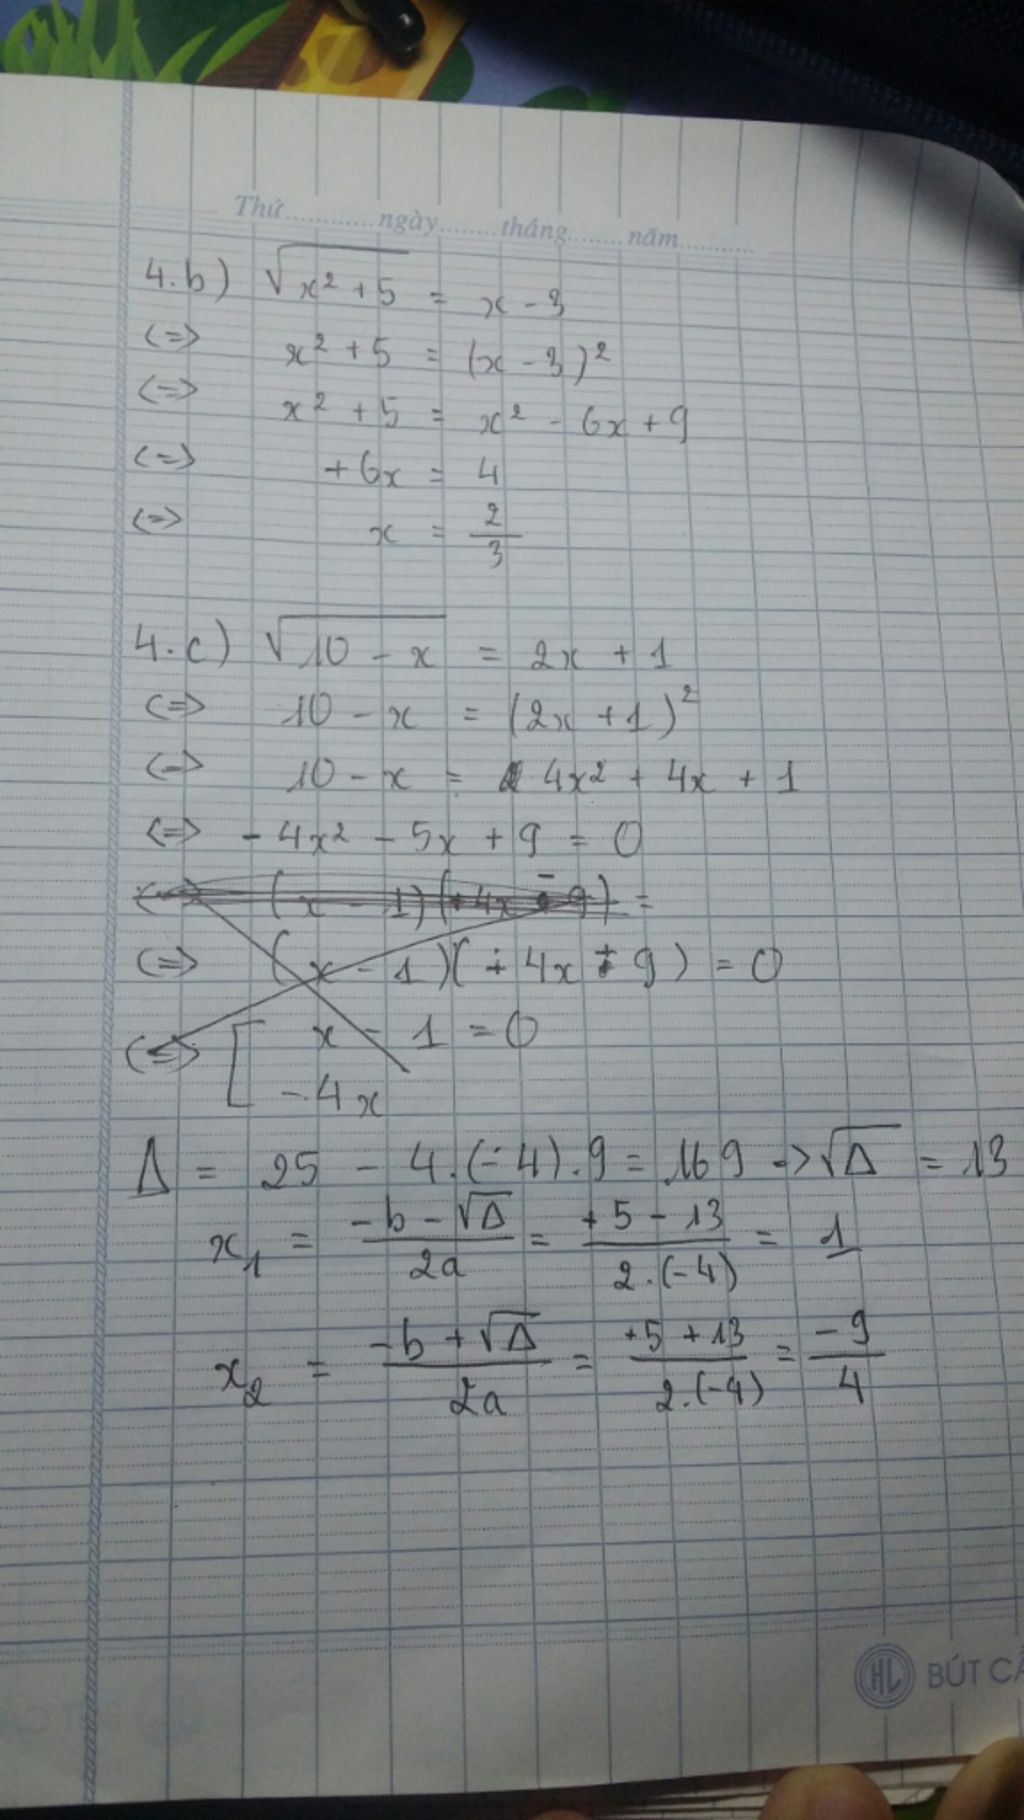 Thứ............ngày........tháng.......năm..........
4.b) √(x² + 5) = x - 3
<=> x² + 5 = (x - 3)²
<=> x² + 5 = x² - 6x + 9
<=> +6x = 4
<=> x = 2/3
4.c) √(10 - x) = 2x + 1
<=> 10 - x = (2x + 1)²
<=> 10 - x = 4x² + 4x + 1
<=> - 4x² - 5x + 9 = 0
(x - 1)(+4x - 9) =
<=> (x - 1)(÷ 4x + 9) = 0
<=> [ x - 1 = 0
- 4x
Δ = 25 - 4.(-4).9 = 169 -> √Δ = 13
x₁ = (-b - √Δ)/2a = (+5 - 13)/2.(-4) = 1
x₂ = (-b + √Δ)/2a = (+5 + 13)/2.(-4) = -9/4
HL BÚT CÁ